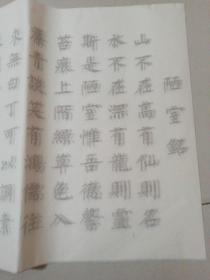 陋室銘
山不在高有仙則名
水不在深有龍則靈
斯是陋室惟吾德馨
苔痕上階綠草色入
簾青談笑有鴻儒往
來無白丁可以調素